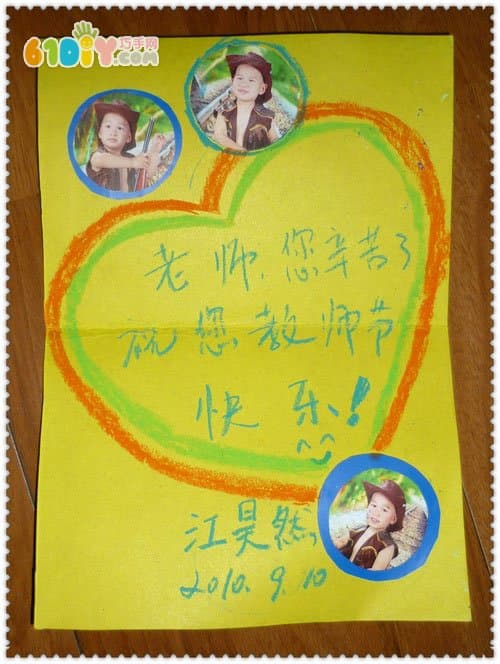 61DIY巧手网
.com
老师,您辛苦了
祝您教师节
快乐!
江昊然
2010.9.10